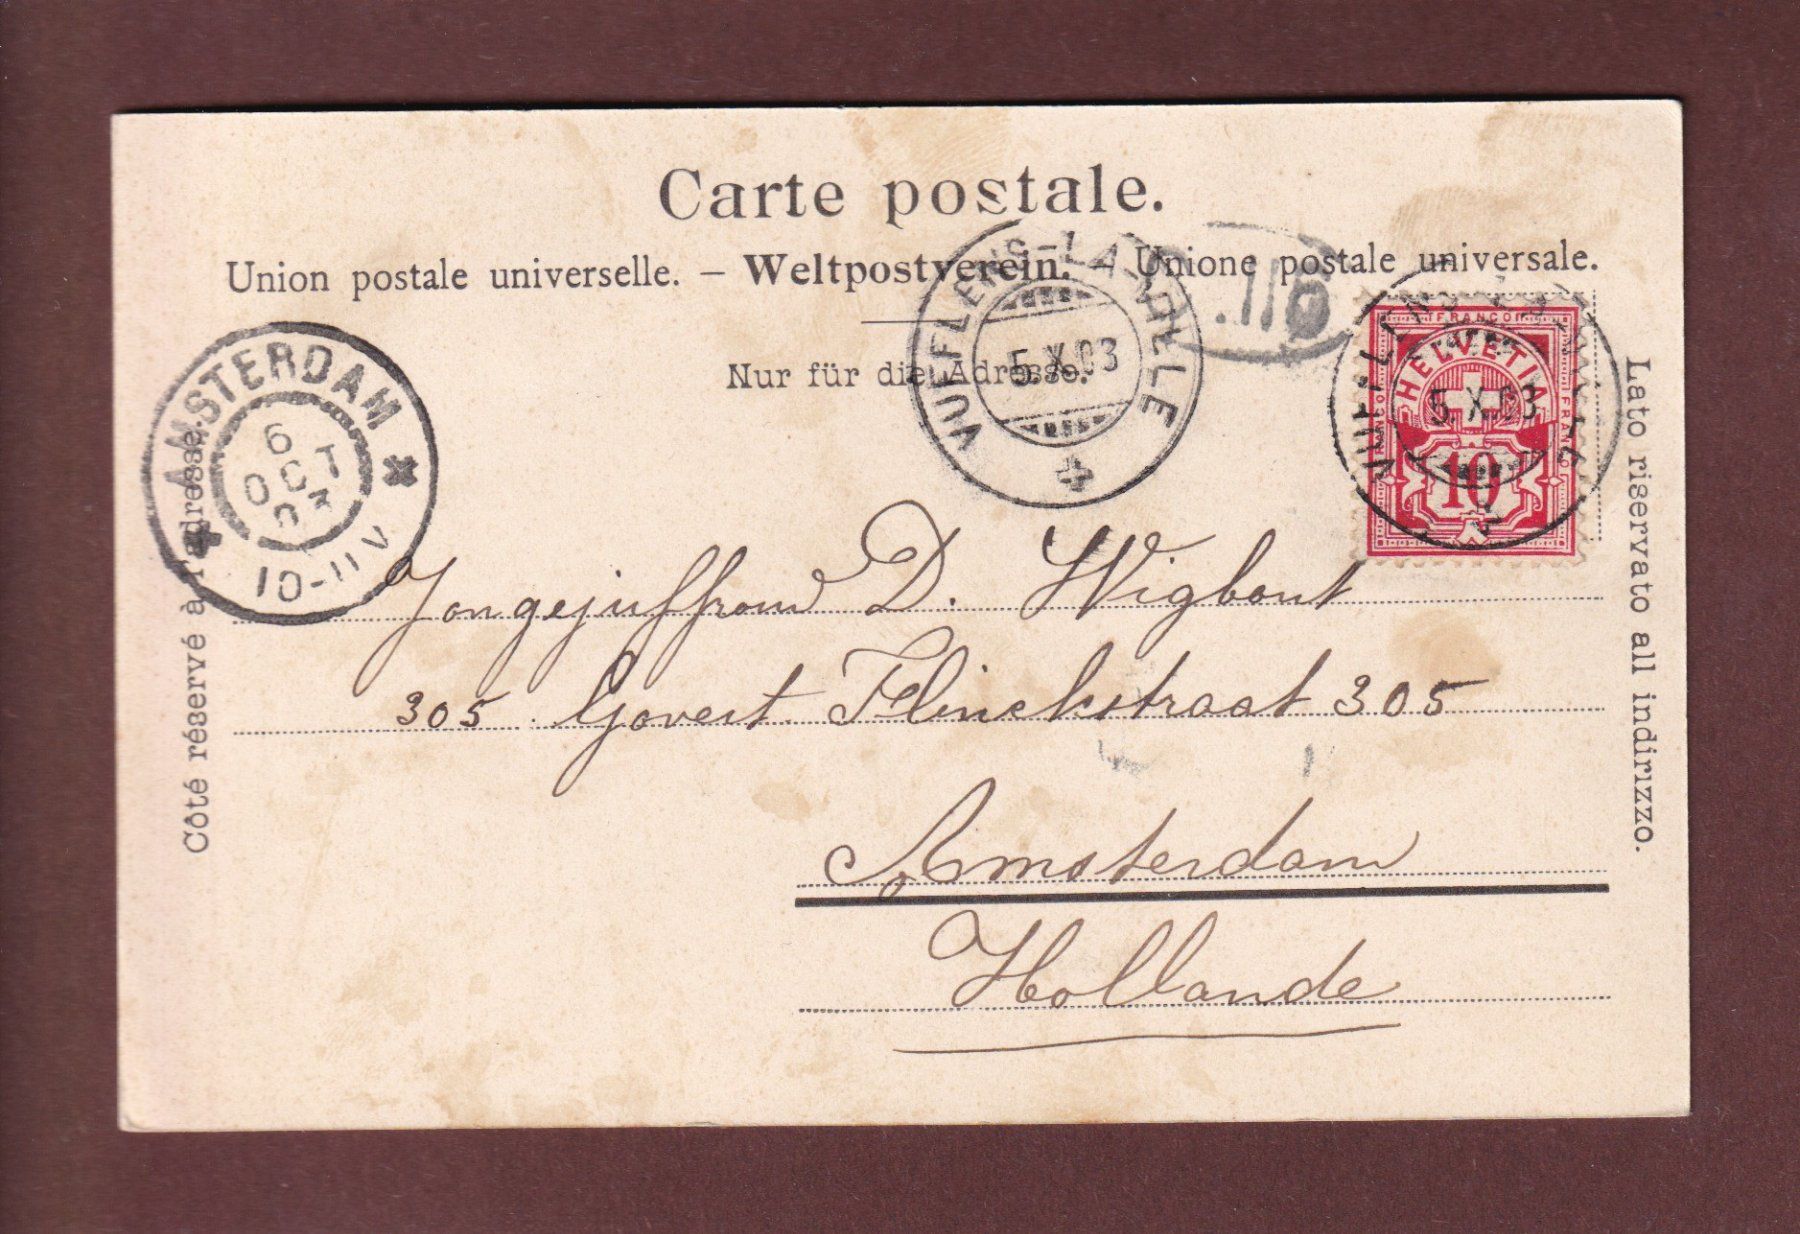 Carte postale.
Union postale universelle. – Weltpostverein. – Unione postale universale.
Nur für die Adresse.
Côté réservé à l'adresse.
Lato riservato all indirizzo.
AMSTERDAM
6 OCT 03
10-11V
VUFFLENS-LA-VILLE
5.X.03
VUFFLENS-LA-VILLE
5.X.03
FRANCO
FRANCO
FRANCO
HELVETIA
10
Jongejuffrouw D. Wigbout
305. Govert Flinckstraat 305
Amsterdam
Hollande